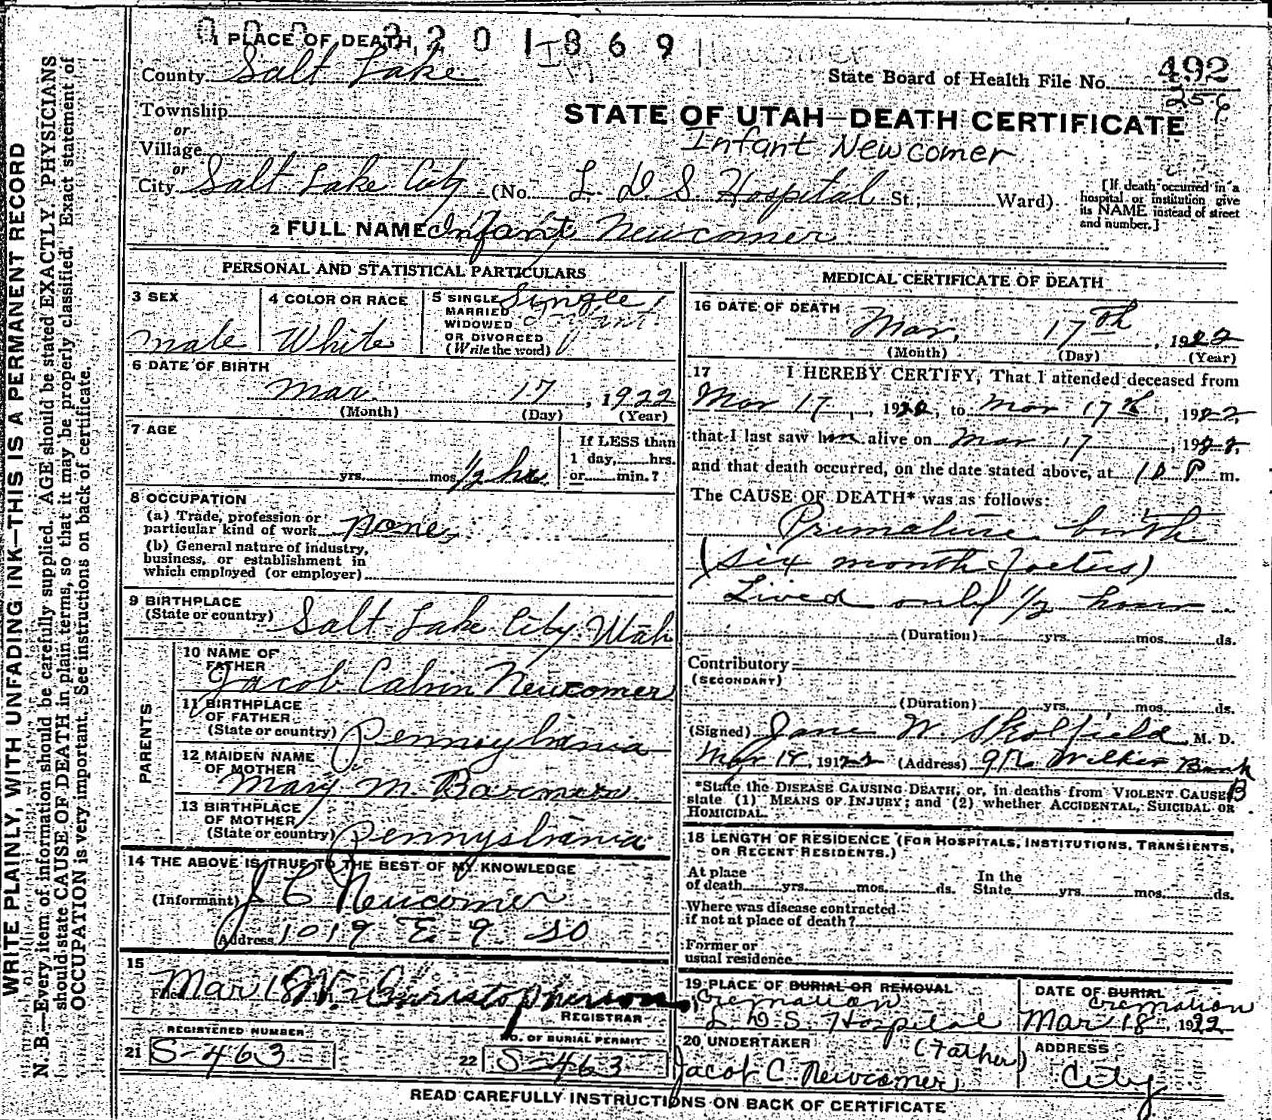 0 0 3 2 0 1 8 6 9
1 PLACE OF DEATH
County Salt Lake
State Board of Health File No. 492
256
STATE OF UTAH—DEATH CERTIFICATE
Township
or
Village
or
Infant Newcomer
City Salt Lake City (No. L. D. S. Hospital St.; Ward)
[If death occurred in a hospital or institution give its NAME instead of street and number.]
2 FULL NAME Infant Newcomer
PERSONAL AND STATISTICAL PARTICULARS
3 SEX
male
4 COLOR OR RACE
White
5 SINGLE
MARRIED
WIDOWED
OR DIVORCED
(Write the word)
Single
Infant
6 DATE OF BIRTH
Mar 17, 1922
(Month) (Day) (Year)
7 AGE
yrs. mos. 1/2 hr.
If LESS than
1 day, hrs.
or min.?
8 OCCUPATION
(a) Trade, profession or
particular kind of work None
(b) General nature of industry,
business, or establishment in
which employed (or employer)
9 BIRTHPLACE
(State or country) Salt Lake City Utah
PARENTS
10 NAME OF
FATHER
Jacob Calvin Newcomer
11 BIRTHPLACE
OF FATHER
(State or country) Pennsylvania
12 MAIDEN NAME
OF MOTHER
Mary M.
13 BIRTHPLACE
OF MOTHER
(State or country) Pennsylvania
14 THE ABOVE IS TRUE TO THE BEST OF MY KNOWLEDGE
(Informant) J C Newcomer
Address 1019 E 9 So
15
Mar 18 Christopherson
REGISTRAR
REGISTERED NUMBER
21 S-463
NO. OF BURIAL PERMIT
22 S-463
MEDICAL CERTIFICATE OF DEATH
16 DATE OF DEATH
Mar. 17th, 1922
(Month) (Day) (Year)
17 I HEREBY CERTIFY, That I attended deceased from
Mar 17, 1922, to Mar 17th, 1922,
that I last saw him alive on Mar 17, 1922,
and that death occurred, on the date stated above, at 10 P m.
The CAUSE OF DEATH* was as follows:
Premature birth
(six month foetus)
Lived only 1/2 hour
(Duration) yrs. mos. ds.
Contributory
(SECONDARY)
(Duration) yrs. mos. ds.
(Signed) Jane W. Skolfield M. D.
Mar 18, 1922 (Address) Bank
B
*State the DISEASE CAUSING DEATH, or, in deaths from VIOLENT CAUSES
state (1) MEANS OF INJURY; and (2) whether ACCIDENTAL, SUICIDAL OR
HOMICIDAL.
18 LENGTH OF RESIDENCE (FOR HOSPITALS, INSTITUTIONS, TRANSIENTS,
OR RECENT RESIDENTS.)
At place
of death yrs. mos. ds.
In the
State yrs. mos. ds.
Where was disease contracted
if not at place of death?
Former or
usual residence
19 PLACE OF BURIAL OR REMOVAL
Cremation
L. D. S. Hospital
DATE OF BURIAL
Cremation
Mar 18, 1922
20 UNDERTAKER (Father)
Jacob C. Newcomer
ADDRESS
City
READ CAREFULLY INSTRUCTIONS ON BACK OF CERTIFICATE
WRITE PLAINLY, WITH UNFADING INK—THIS IS A PERMANENT RECORD
N. B.—Every item of information should be carefully supplied. AGE should be stated EXACTLY. PHYSICIANS
should state CAUSE OF DEATH in plain terms, so that it may be properly classified. Exact statement of
OCCUPATION is very important. See instructions on back of certificate.